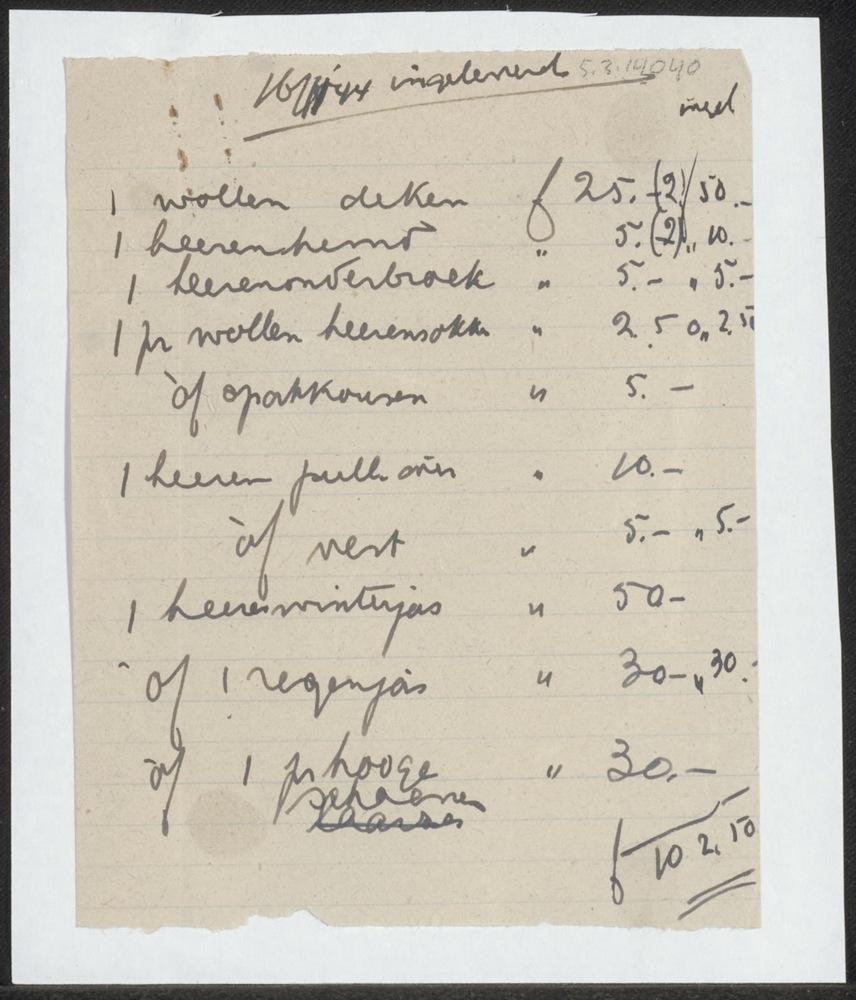 16/11 '44 ingeleverd 5.3.14040
ingel
1 wollen deken f 25.- (2) / 50.-
1 heerenhemd " 5. (2) " 10.-
1 heerenonderbroek " 5.- " 5.-
1 pr wollen heerensokken " 2.50 " 2.50
òf sportkousen " 5.-
1 heeren pullover " 10.-
òf vest " 5.- " 5.-
1 heerenwinterjas " 50-
òf 1 regenjas " 30- " 30.-
òf 1 pr hooge " 30.-
schoenen
laarzen
f 102,50